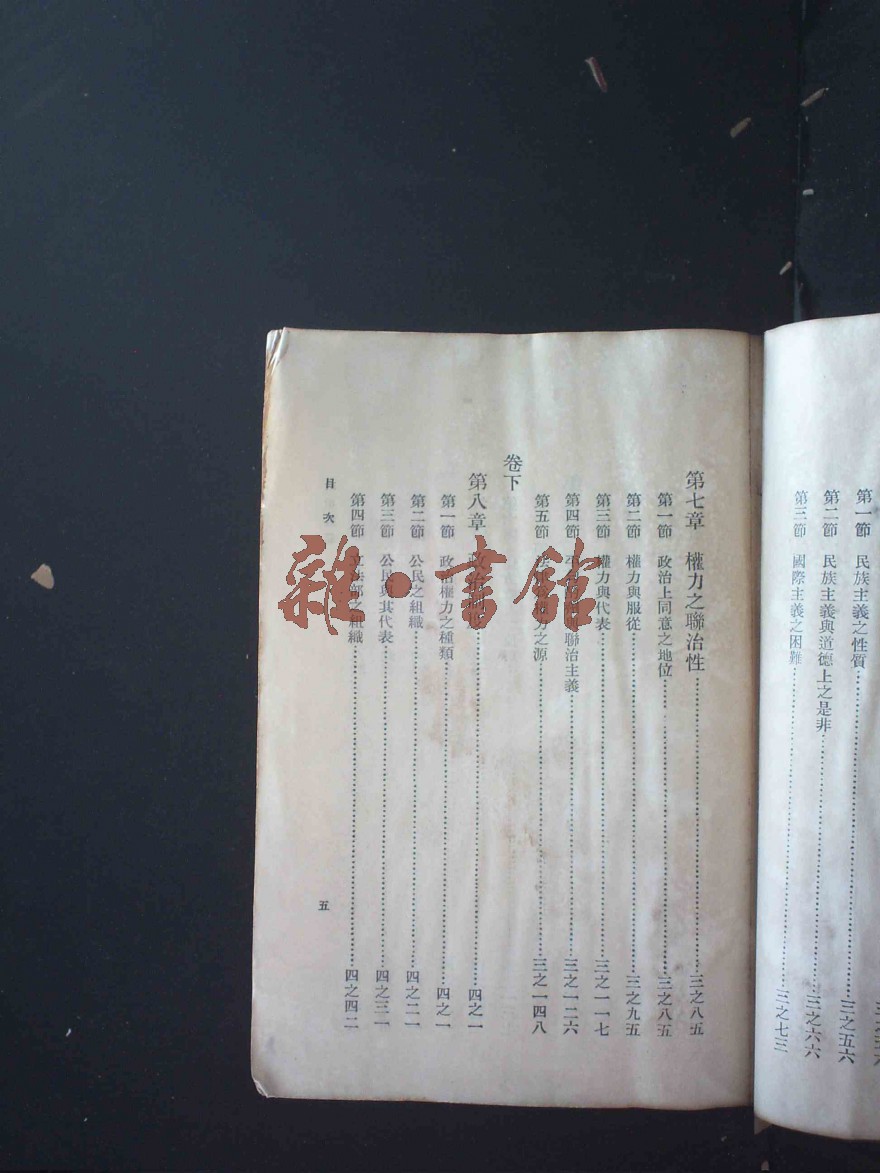 第一節　民族主義之性質……三之五六
第二節　民族主義與道德上之是非……三之六六
第三節　國際主義之困難……三之七三
第七章　權力之聯治性……三之八五
第一節　政治上同意之地位……三之八五
第二節　權力與服從……三之九五
第三節　權力與代表……三之一一七
第四節　聯治主義……三之一二六
第五節　權力之源……三之一四八
卷下
第八章　政治制度……四之一
第一節　政治權力之種類……四之一
第二節　公民之組織……四之二一
第三節　公民與其代表……四之三一
第四節　立法部之組織……四之四二
目次
五
雜·書館